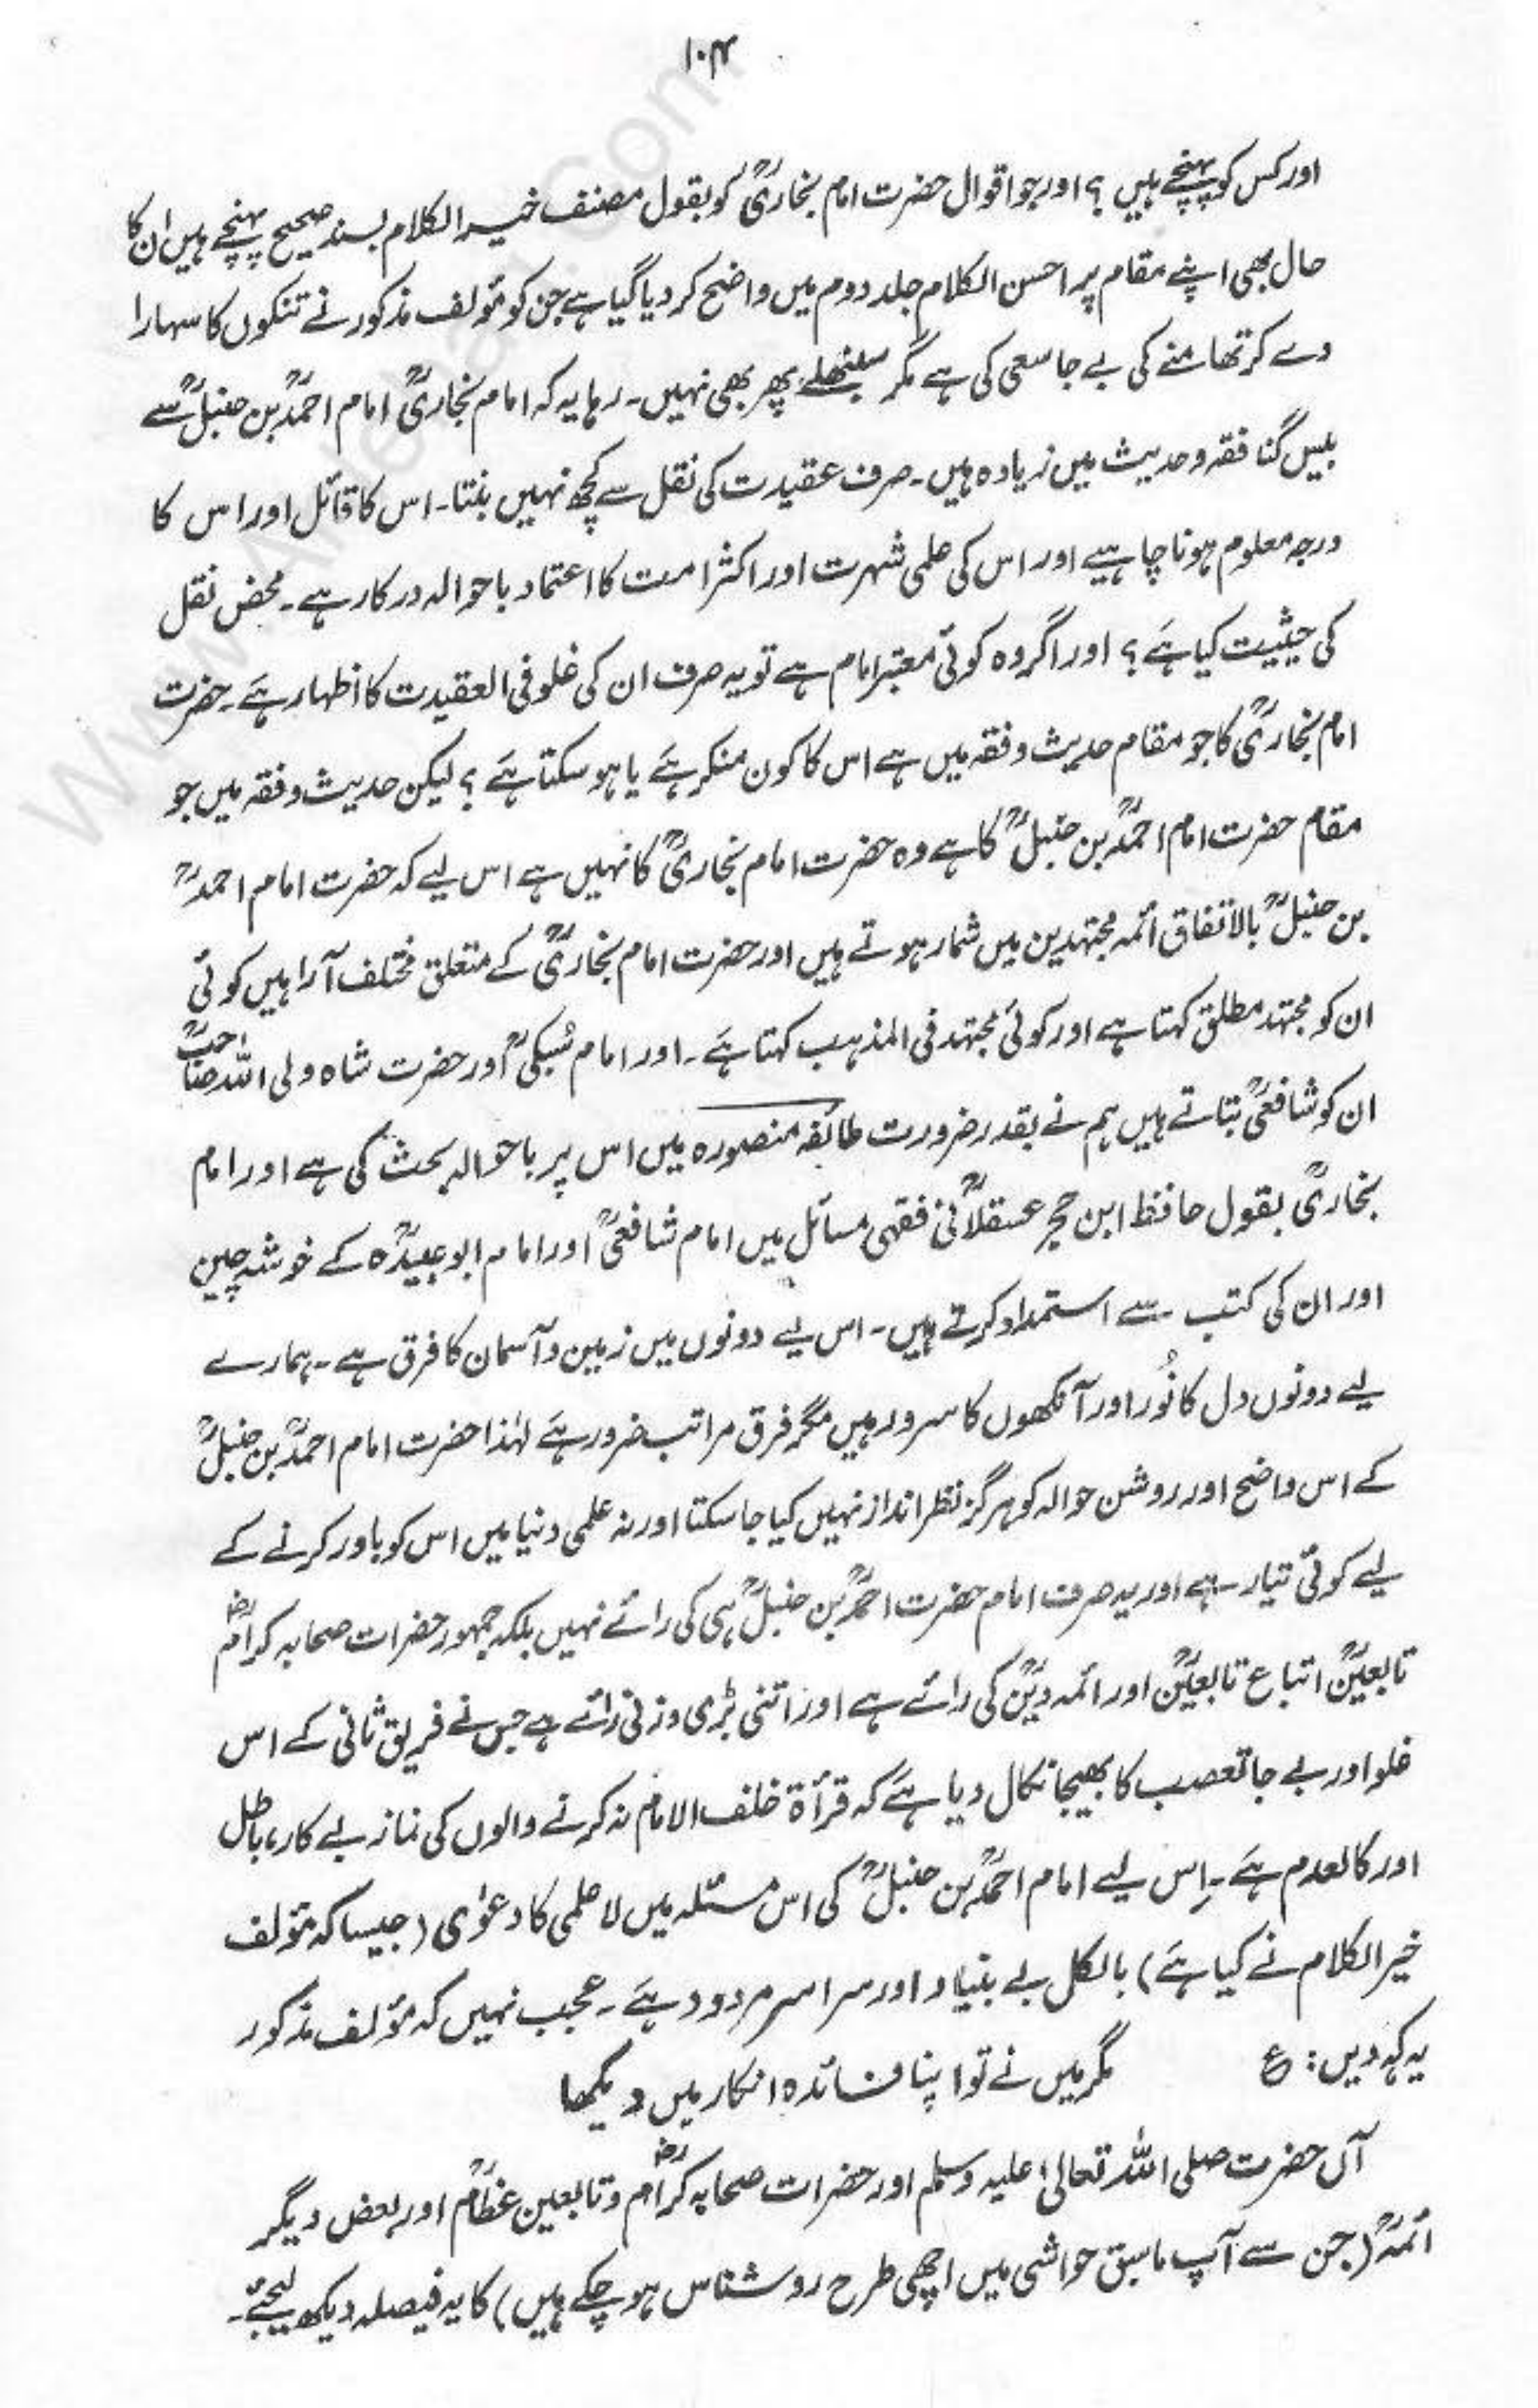 ۱۰۴
اور کس کو پہنچے ہیں ؟ اور جو اقوال حضرت امام بخاریؒ کو بقول مصنف خیر الکلام بسند صحیح پہنچے ہیں ان کا
حال بھی اپنے مقام پر احسن الکلام جلد دوم میں واضح کر دیا گیا ہے جن کو مؤلف مذکور نے تنکوں کا سہارا
دے کر تھامنے کی بے جا سعی کی ہے مگر سنبھلے پھر بھی نہیں ۔ رہا یہ کہ امام بخاریؒ امام احمدؒ بن حنبلؒ سے
بیس گنا فقہ و حدیث میں زیادہ ہیں ۔ صرف عقیدت کی نقل سے کچھ نہیں بنتا ۔ اس کا قائل اور اس کا
درجہ معلوم ہونا چاہیے اور اس کی علمی شہرت اور اکثر امت کا اعتماد باحوالہ درکار ہے ۔ محض نقل
کی حیثیت کیا ہے ؟ اور اگر وہ کوئی معتبر امام ہے تو یہ صرف ان کی غلو فی العقیدت کا اظہار ہے ۔ حضرت
امام بخاریؒ کا جو مقام حدیث و فقہ میں ہے اس کا کون منکر ہے یا ہو سکتا ہے ؟ لیکن حدیث و فقہ میں جو
مقام حضرت امام احمدؒ بن حنبلؒ کا ہے وہ حضرت امام بخاریؒ کا نہیں ہے اس لیے کہ حضرت امام احمدؒ
بن حنبلؒ بالاتفاق ائمہ مجتہدین میں شمار ہوتے ہیں اور حضرت امام بخاریؒ کے متعلق مختلف آرا ہیں کوئی
ان کو مجتہد مطلق کہتا ہے اور کوئی مجتہد فی المذہب کہتا ہے ۔ اور امام سُبکیؒ اور حضرت شاہ ولی اللہ صاحبؒ
ان کو شافعیؒ بتاتے ہیں ہم نے بقدر ضرورت طائفہ منصورہ میں اس پر باحوالہ بحث کی ہے اور امام
بخاریؒ بقول حافظ ابن حجر عسقلانیؒ فقہی مسائل میں امام شافعیؒ اور امام ابو عبیدہؒ کے خوشہ چین
اور ان کی کتب سے استمداد کرتے ہیں ۔ اس لیے دونوں میں زمین و آسمان کا فرق ہے ۔ ہمارے
لیے دونوں دل کا نُور اور آنکھوں کا سرور ہیں مگر فرق مراتب ضرور ہے لہٰذا حضرت امام احمدؒ بن حنبلؒ
کے اس واضح اور روشن حوالہ کو ہرگز نظر انداز نہیں کیا جا سکتا اور نہ علمی دنیا میں اس کو باور کرنے کے
لیے کوئی تیار ہے اور یہ صرف امام حضرت احمدؒ بن حنبلؒ ہی کی رائے نہیں بلکہ جمہور حضرات صحابہ کرامؓ
تابعینؒ اتباع تابعینؒ اور ائمہ دینؒ کی رائے ہے اور اتنی بڑی وزنی رائے ہے جس نے فریق ثانی کے اس
غلو اور بے جا تعصب کا بھیجا نکال دیا ہے کہ قرأۃ خلف الامام نہ کرنے والوں کی نماز بے کار، باطل
اور کالعدم ہے ۔ اِس لیے امام احمدؒ بن حنبلؒ کی اس مسئلہ میں لاعلمی کا دعوٰی (جیسا کہ مؤلف
خیر الکلام نے کیا ہے) بالکل بے بنیاد اور سراسر مردود ہے ۔ عجب نہیں کہ مؤلف مذکور
یہ کہہ دیں : ع مگر میں نے تو اپنا فائدہ انکار میں دیکھا
آں حضرت صلی اللہ تعالیٰ علیہ وسلم اور حضرات صحابہ کرامؓ و تابعین عظامؒ اور بعض دیگر
ائمہؒ (جن سے آپ ماسبق حواشی میں اچھی طرح روشناس ہو چکے ہیں) کا یہ فیصلہ دیکھ لیجئے ۔